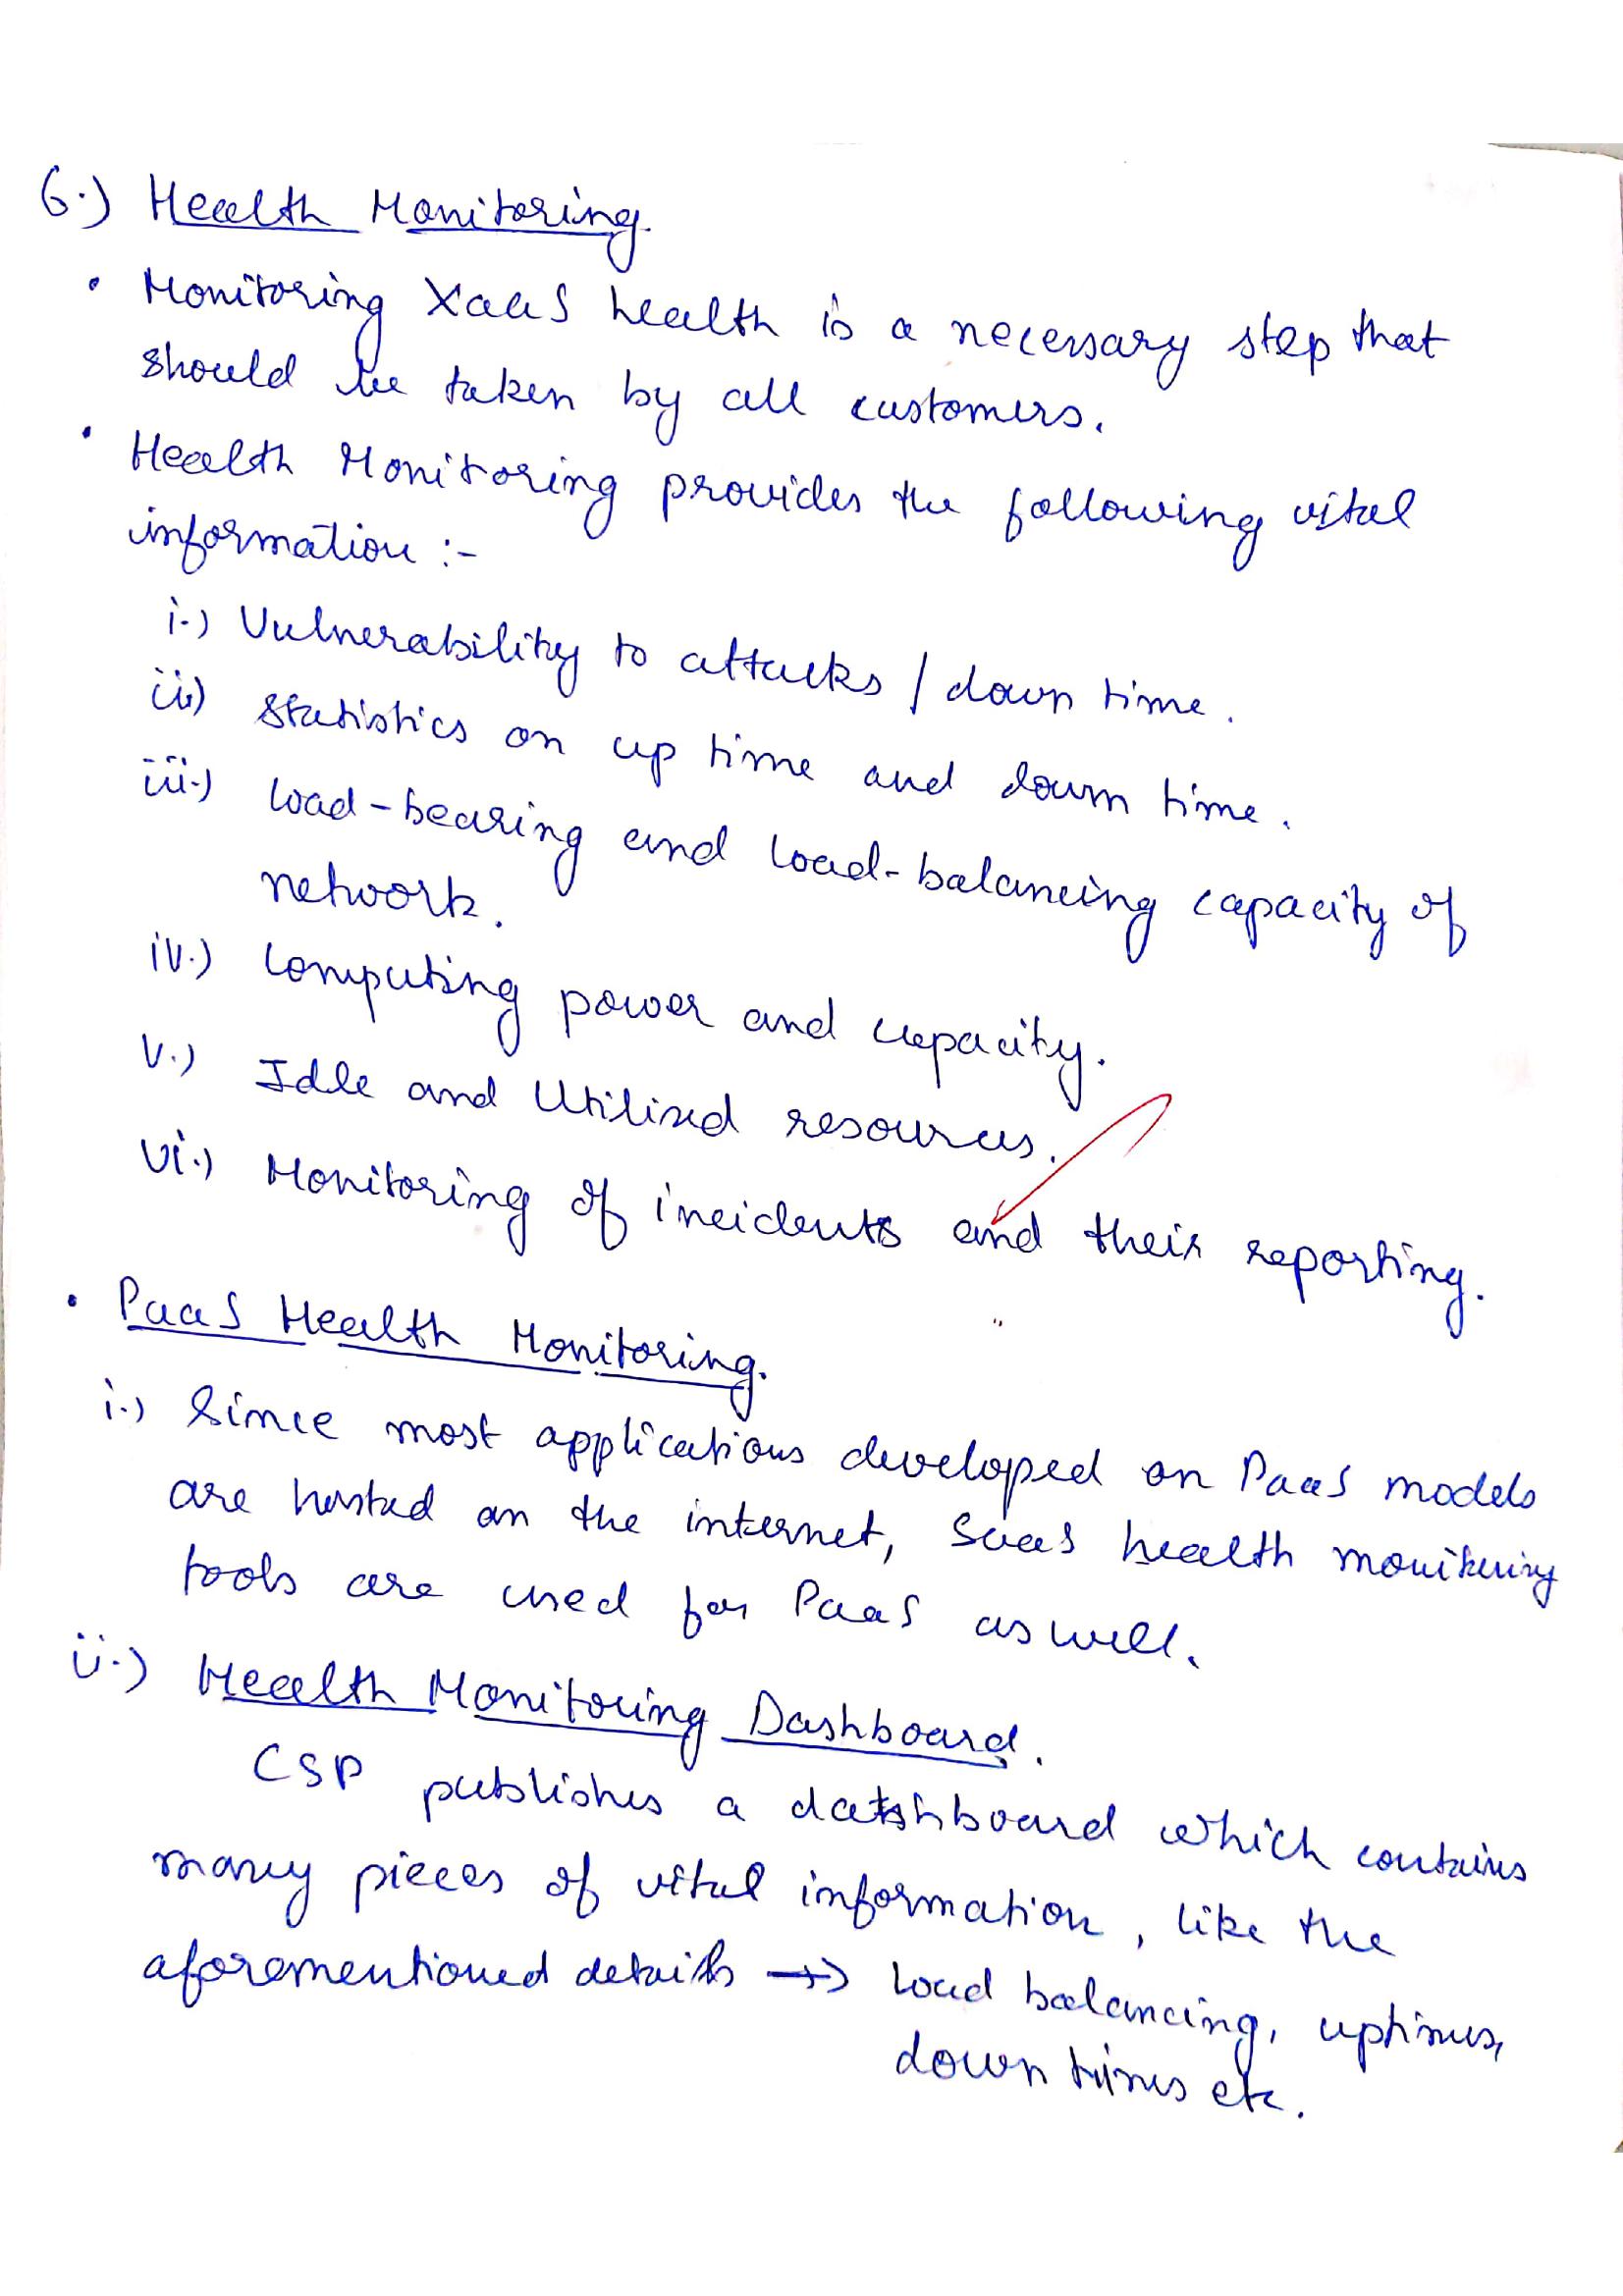 6.) Health Monitoring
• Monitoring XaaS health is a necessary step that
should be taken by all customers.
• Health Monitoring provides the following vital
information :-
i.) Vulnerability to attacks / down time.
ii.) Statistics on up time and down time.
iii.) Load-bearing and load-balancing capacity of
network.
iv.) Computing power and capacity.
v.) Idle and Utilized resources.
vi.) Monitoring of incidents and their reporting.
• PaaS Health Monitoring.
i.) Since most applications developed on PaaS models
are hosted on the internet, SaaS health monitoring
tools are used for PaaS as well.
ii.) Health Monitoring Dashboard.
CSP publishes a dashboard which contains
many pieces of vital information, like the
aforementioned details → load balancing, uptimes,
down times etc.